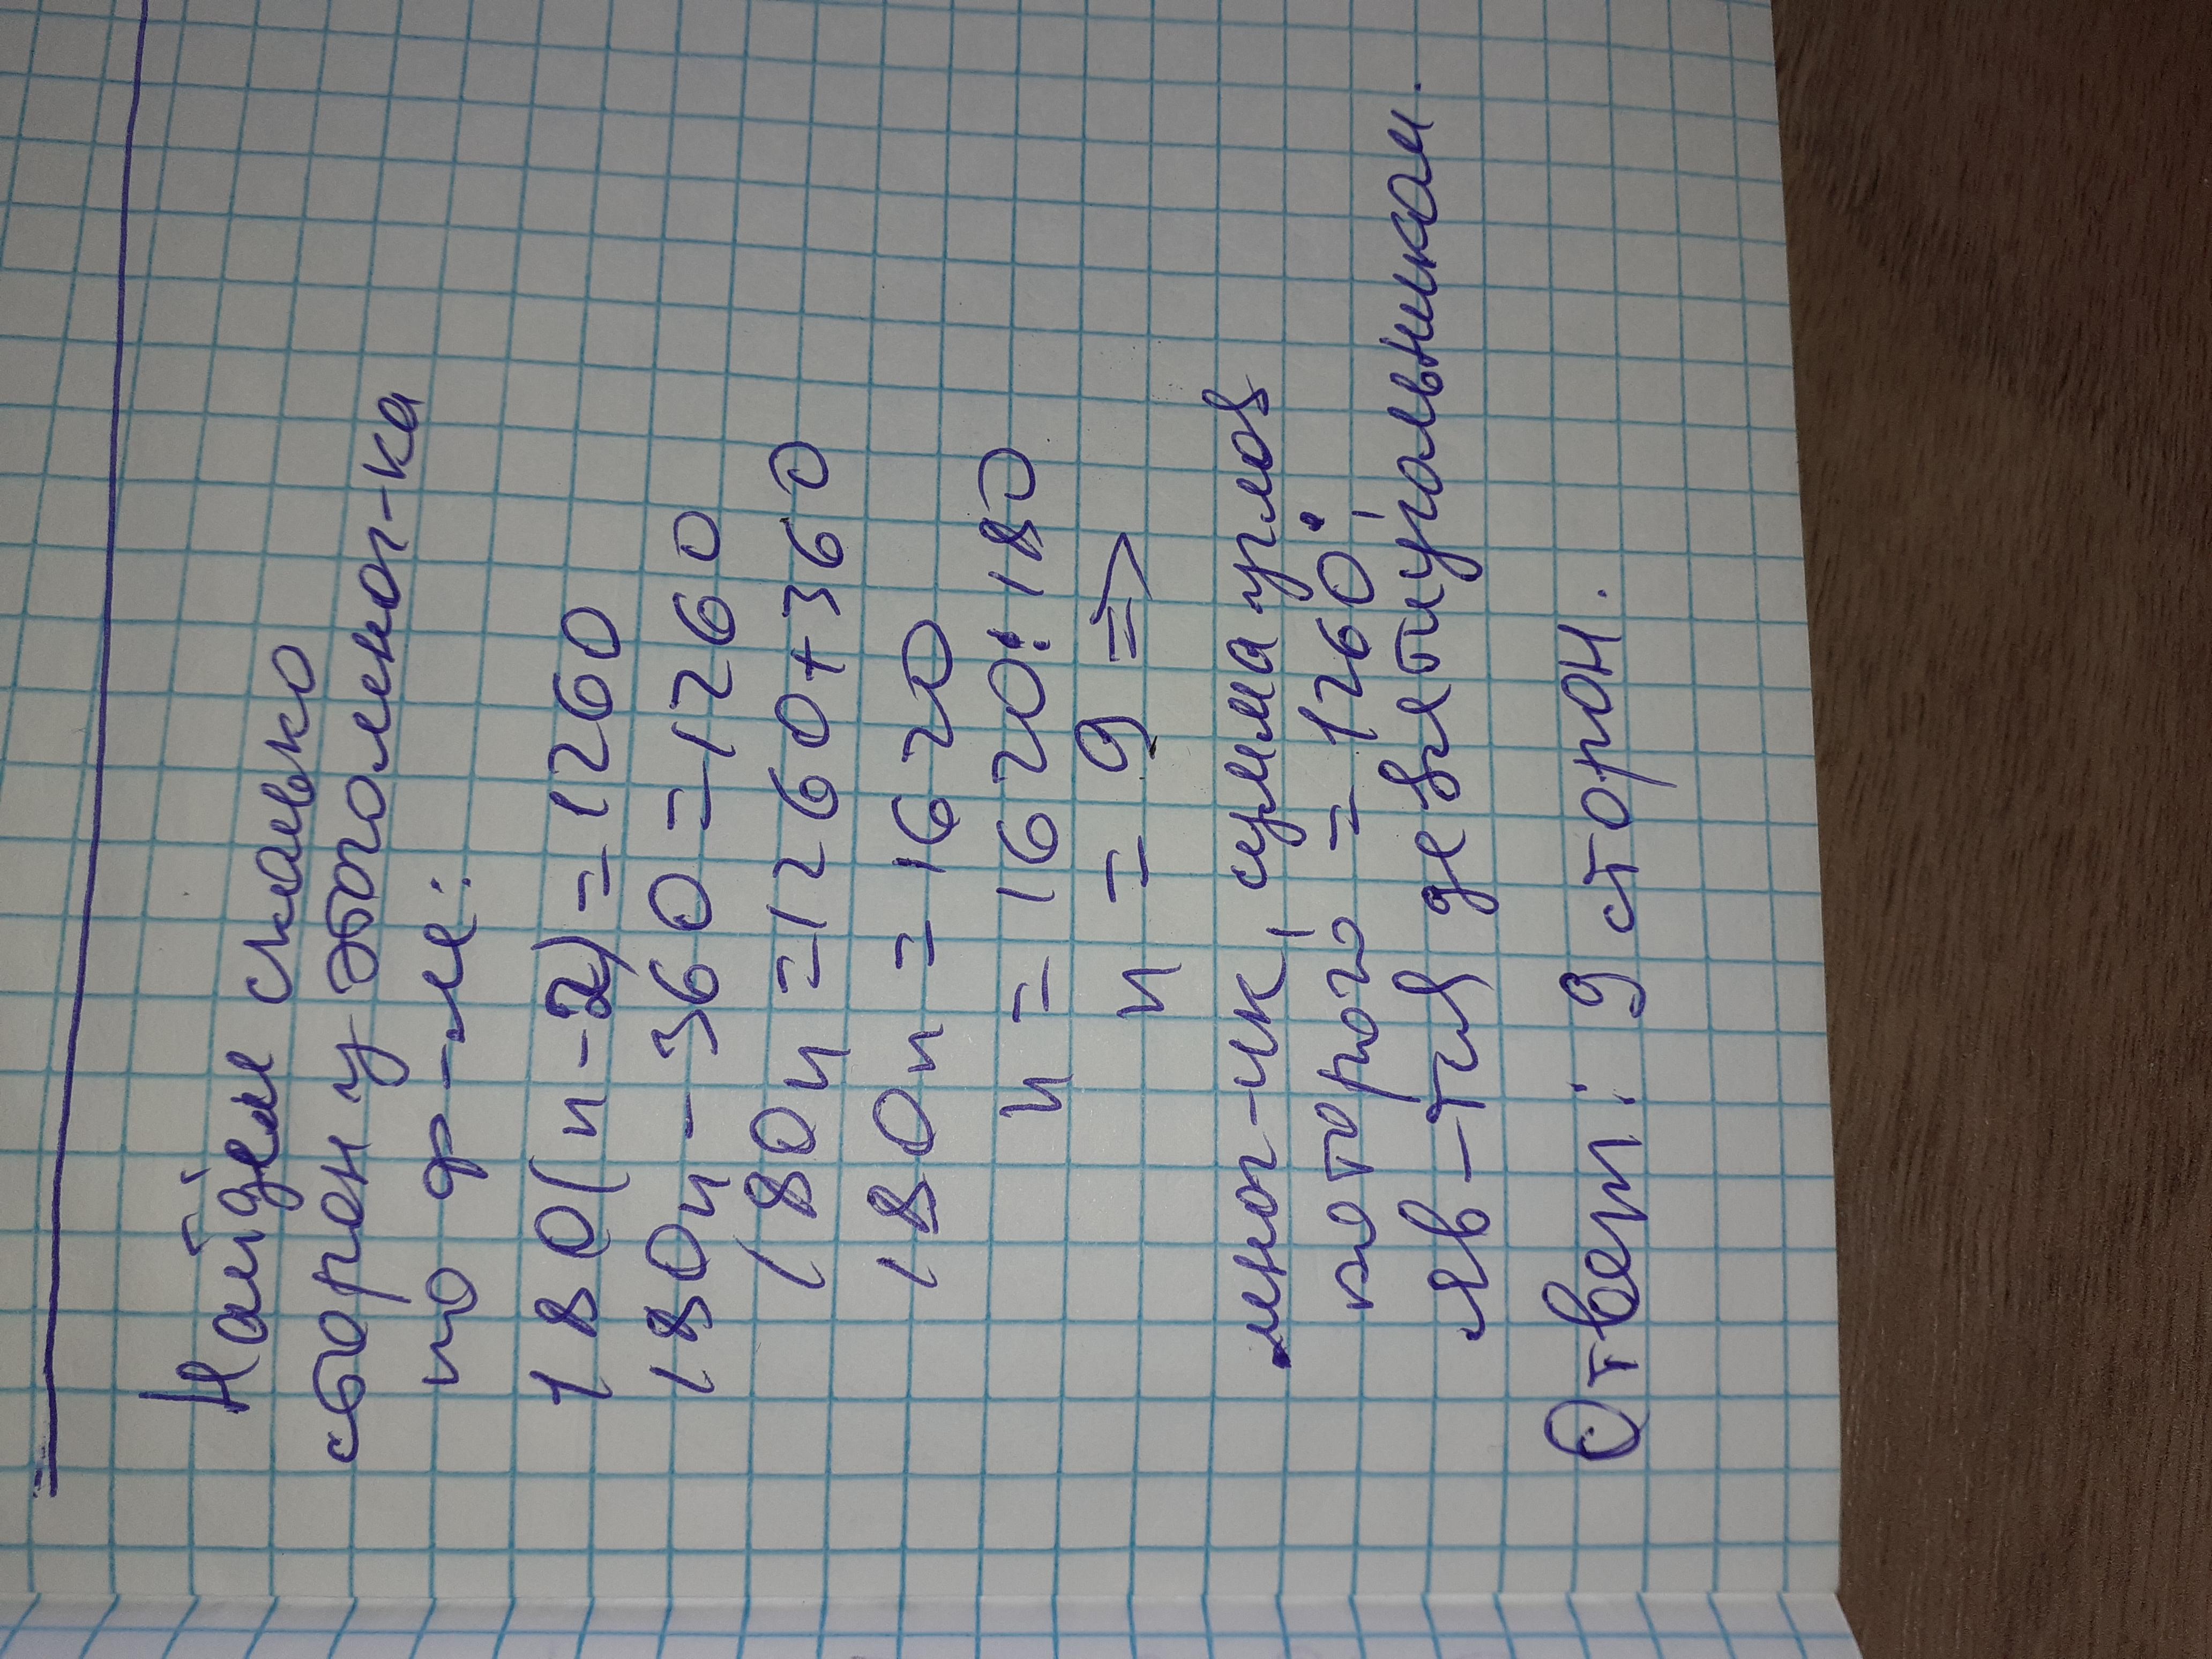 Найдём сколько
сторон у этого мног-ка
по ф-ле:
180(n-2)=1260
180n-360=1260
180n=1260+360
180n=1620
n=1620:180
n=9 =>
мног-ик, сумма углов
которого =1260°,
яв-тся девятиугольником.
Ответ: 9 сторон.